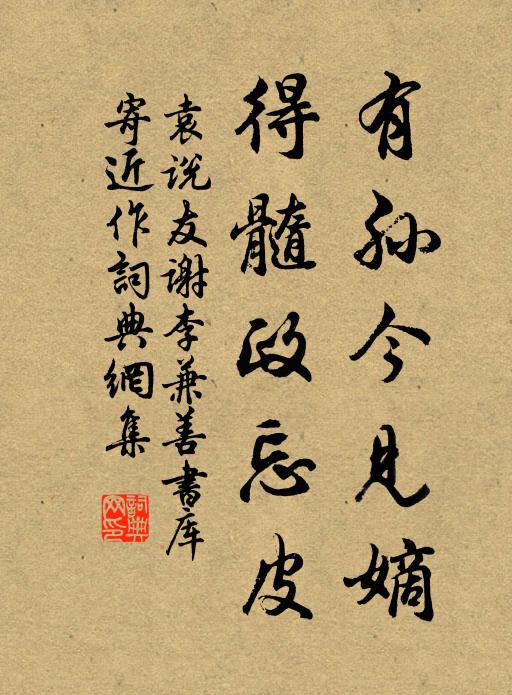 有孙今见嫡
得髓政忘皮
袁说友谢李兼善书库
寄近作詞典網集
詞典網印